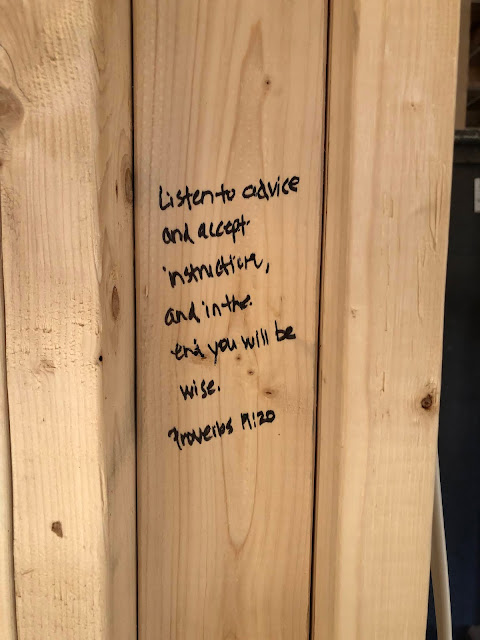 Listen to advice
and accept
instruction,
and in the
end you will be
wise.
Proverbs 19:20